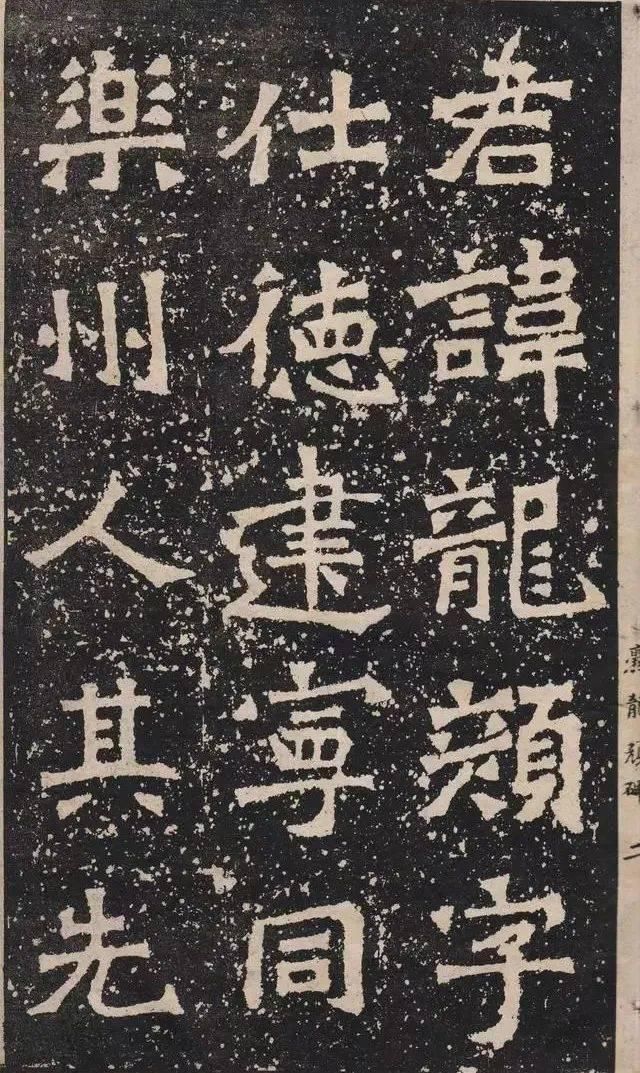 君諱龍顔字
仕德建寧同
樂州人其先
爨龍顔碑 二